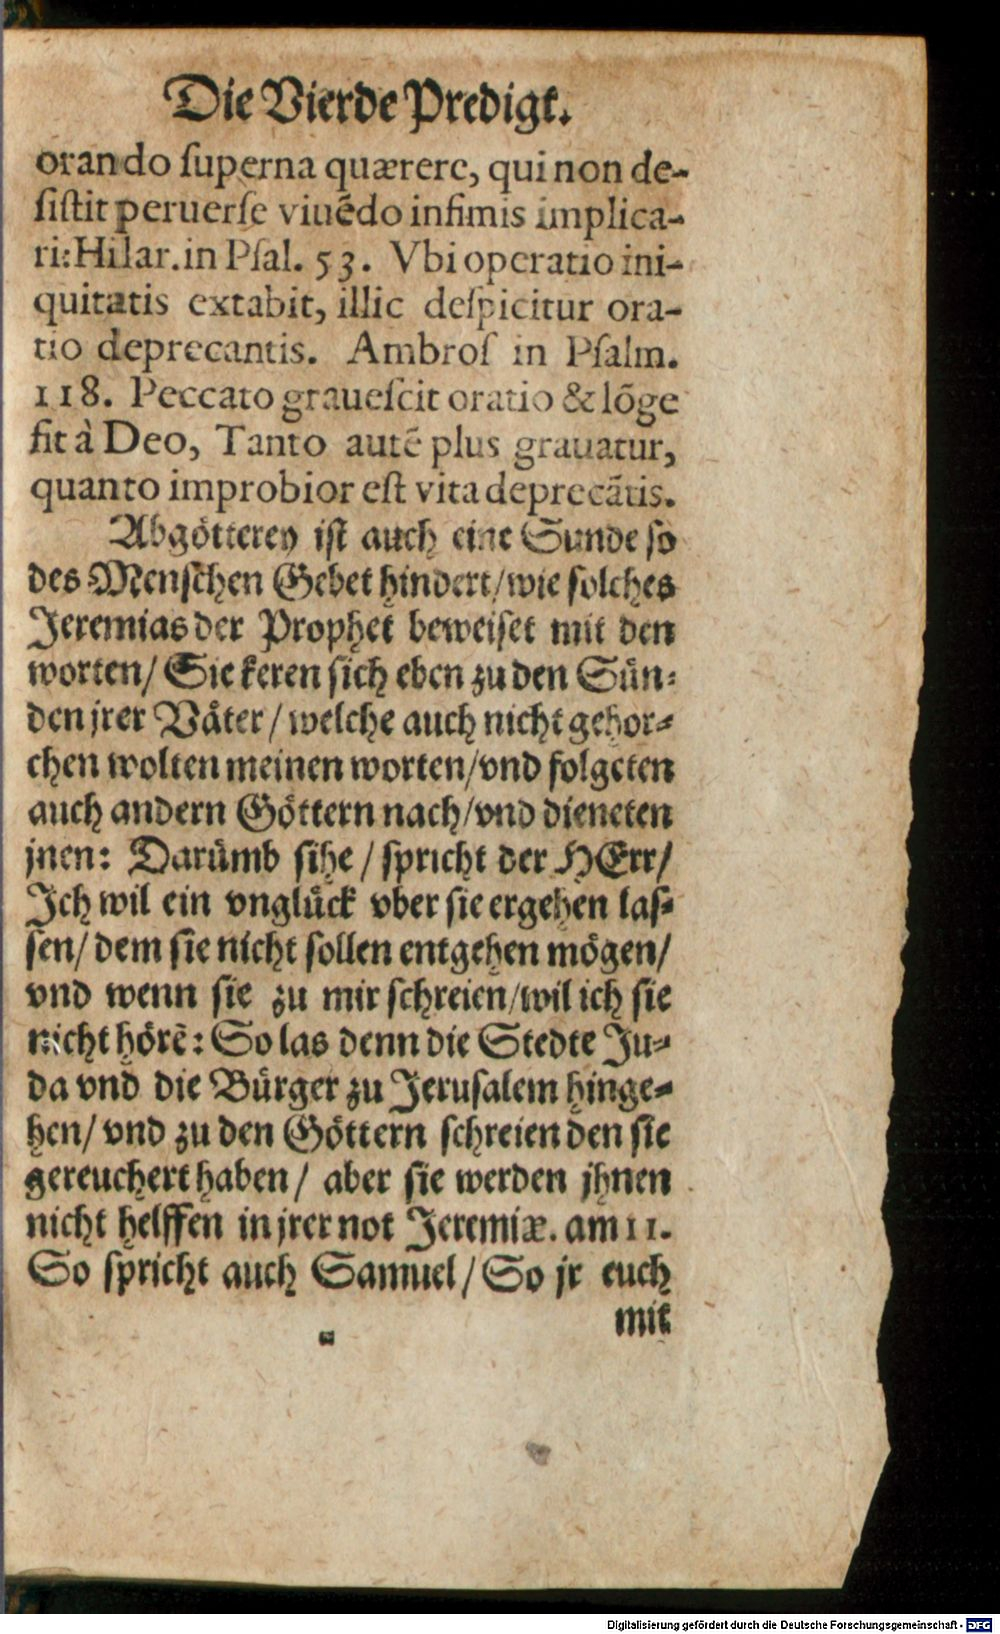 Die Vierde Predigt.
orando ſuperna quærere, qui non de-
ſiſtit peruerſe viuẽdo infimis implica-
ri: Hilar. in Pſal. 53. Vbi operatio ini-
quitatis extabit, illic deſpicitur ora-
tio deprecantis. Ambroſ in Pſalm.
118. Peccato graueſcit oratio & lõge
fit à Deo, Tanto autẽ plus grauatur,
quanto improbior eſt vita deprecãtis.
Abgötterey iſt auch eine Sunde ſo
des Menſchen Gebet hindert/ wie ſolches
Jeremias der Prophet beweiſet mit den
worten/ Sie keren ſich eben zu den Sün-
den jrer Väter/ welche auch nicht gehor-
chen wolten meinen worten/ vnd folgeten
auch andern Göttern nach/ vnd dieneten
jnen: Darümb ſihe/ ſpricht der HErr/
Ich wil ein vnglück vber ſie ergehen laſ-
ſen/ dem ſie nicht ſollen entgehen mögen/
vnd wenn ſie zu mir ſchreien/ wil ich ſie
nicht hörẽ: So las denn die Stedte Ju-
da vnd die Bürger zu Jeruſalem hinge-
hen/ vnd zu den Göttern ſchreien den ſie
gereuchert haben/ aber ſie werden jhnen
nicht helffen in jrer not Jeremiæ. am 11.
So ſpricht auch Samuel/ So jr euch
mit
Digitalisierung gefördert durch die Deutsche Forschungsgemeinschaft - DFG